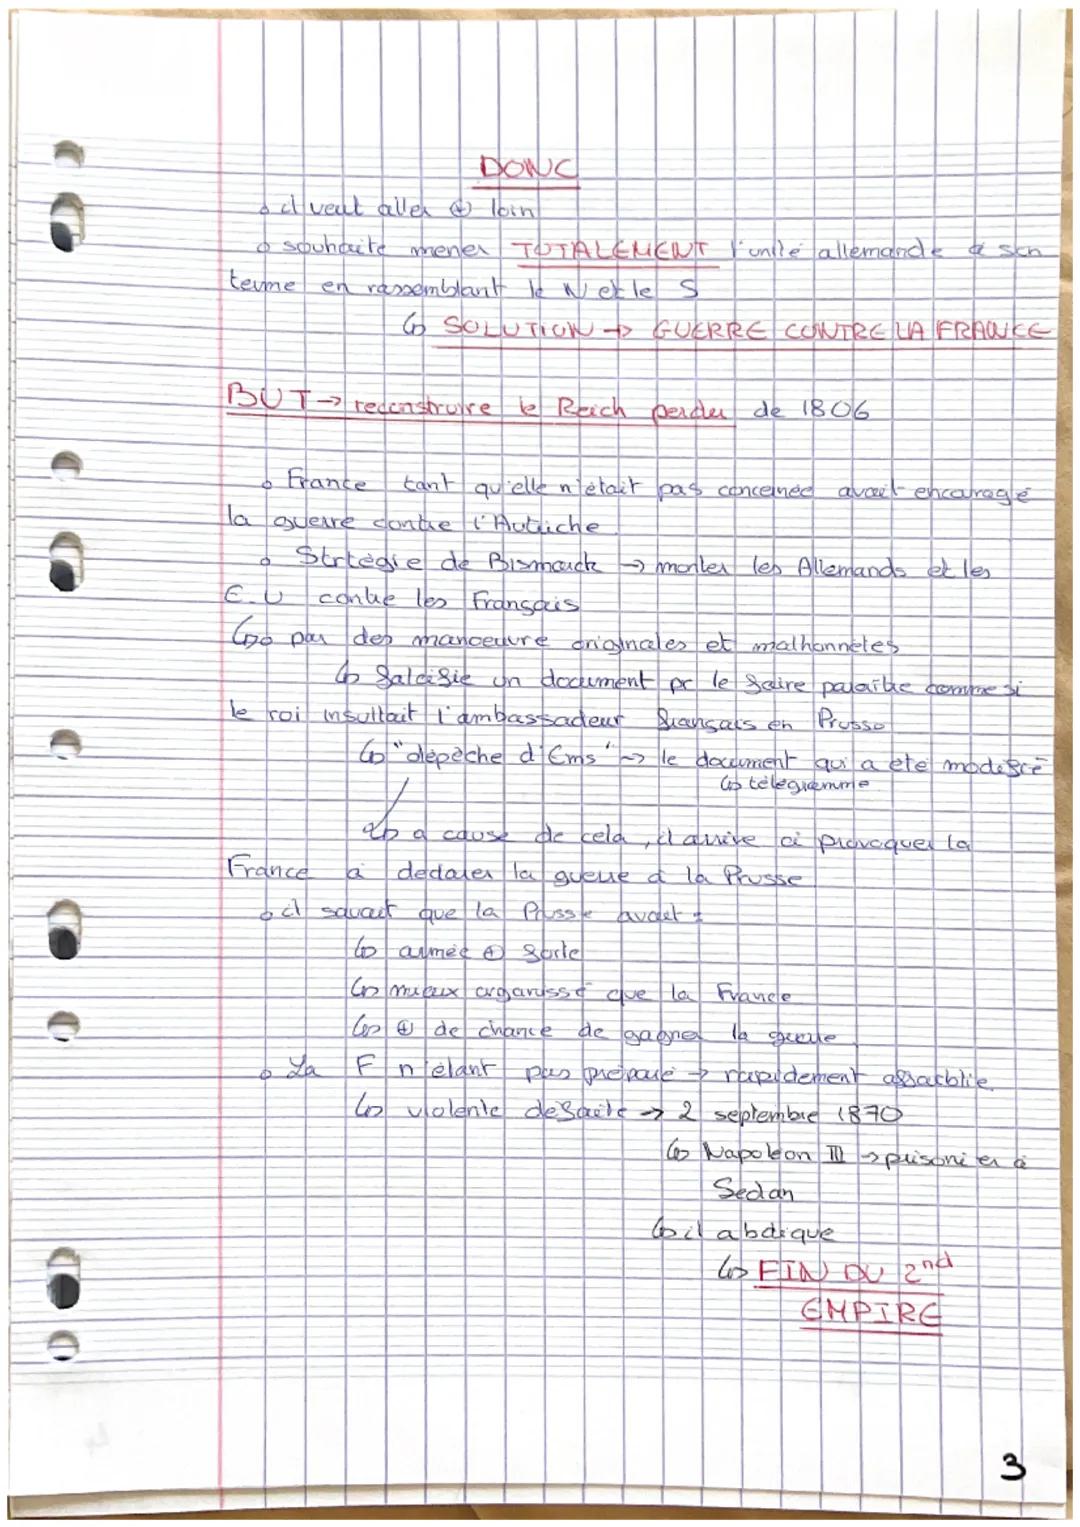 DONC
o il veut aller ⊕ loin
o souhaite mener TOTALEMENT l'unité allemande à son
terme en rassemblant le N et le S
↳ SOLUTION → GUERRE CONTRE LA FRANCE
BUT → reconstruire le Reich perdu de 1806
o France tant qu'elle n'était pas concernée avait encouragé
la guerre contre l'Autriche
o Strtégie de Bismarck → monter les Allemands et les
E.U contre les Français
↳o par des manoeuvre originales et malhonnêtes
↳ falcifie un document pr le faire paraître comme si
le roi insultait l'ambassadeur français en Prusse
↳ "dépêche d'Ems" → le document qui a été modifié
↳ télégramme
↳ à cause de cela, il arrive à provoquer la
France à déclarer la guerre à la Prusse
o il savait que la Prusse avait :
↳ armée ⊕ forte
↳ mieux organisé que la France
↳ ⊕ de chance de gagner la guerre
o La F n'étant pas préparé → rapidement affaiblie.
↳ violente défaite → 2 septembre 1870
↳ Napoléon III → prisonier à
Sedan
↳ il abdique
↳ FIN DU 2nd
EMPIRE
3